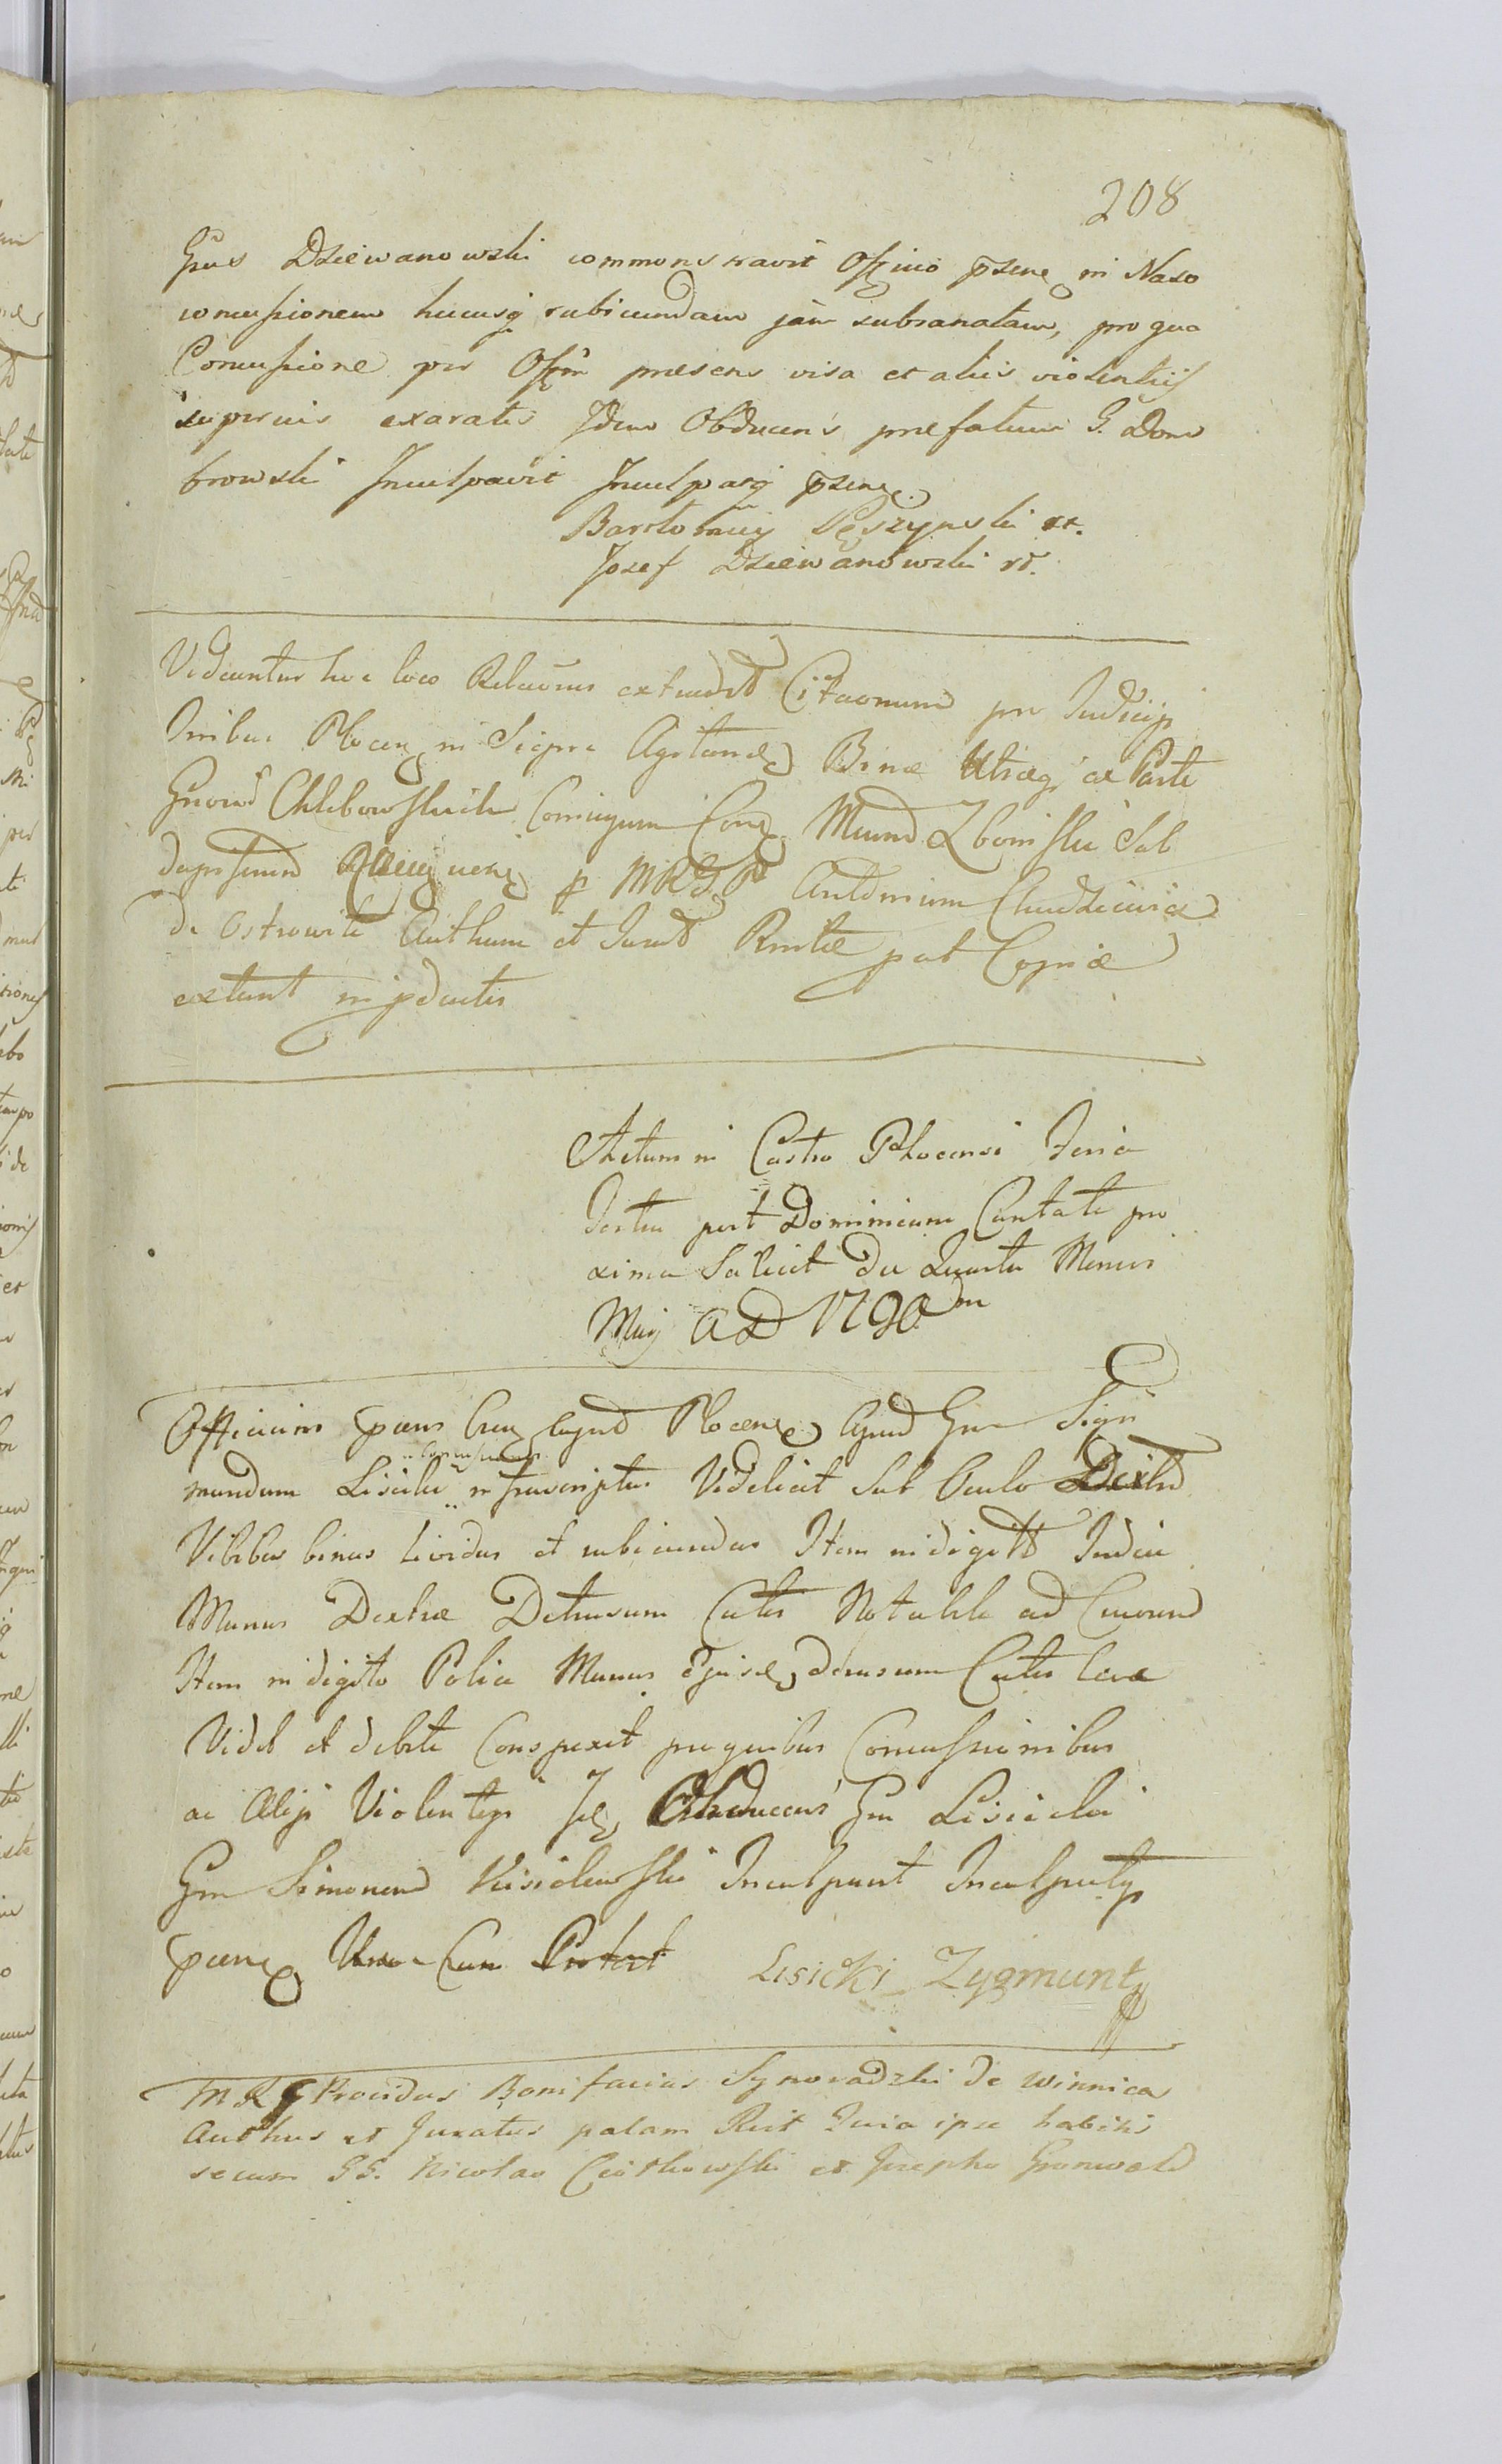 208
Gnus Dziewanowski commonstravit Officio psene in Naso
concussionem hucusq rubicundam jam subsanatam, pro qua
Concussione per Offm presens visa et aliis violentiis
superius exaratis Idem Obducens prefatum G. Dom
browski Inculpavit Inculpatq psene.
Bartłomiey Peszynski
Jozef Dziewanowski
Videantur hoc loco Relaones extradd Citaonum pro Judicijs
Plocen in Sierpc Agitand Binæ Utraq ex Parte
Gnorum Chlebowskich Conjugum Mcund Zboinski Sub
p MRGP Antonium Chudziewicz
de Ostrowite Authum et Jurat put Copiæ
extant in pductis
Actum in Castro Plocensi Feria
Tertia post Dominicam Cantate pro
xima Salicet die Quarta Mensis
Maij AD 1790m
Officium pns Plocene Apud Gnm Sigis
mundum Lisicki infrascriptas Videlicet Sub Oculo Dextro
Vibices binas lividas et rubicundas Item in digito Indice
Manus Dextræ Detrusum Cutis Notabile ad Cruorem
Item in digito Police Manus Ejusd detrusum Cutis leve
Vidit et debite Conspexit pro quibus Concussionibus
ac Alijs Violentijs Obducens Gnus Lisicki
Gnm Simonem Inculpavit Inculpatq
psene Una Cum Protest Lisicki Zygmunt
MRG Providus Bonifacius Synoradzki de Winnica
Authus et Juratus palam Rcit Quia ipse habitis
secum GG. Nicolao Ciotkowski et Josepho Gronwald